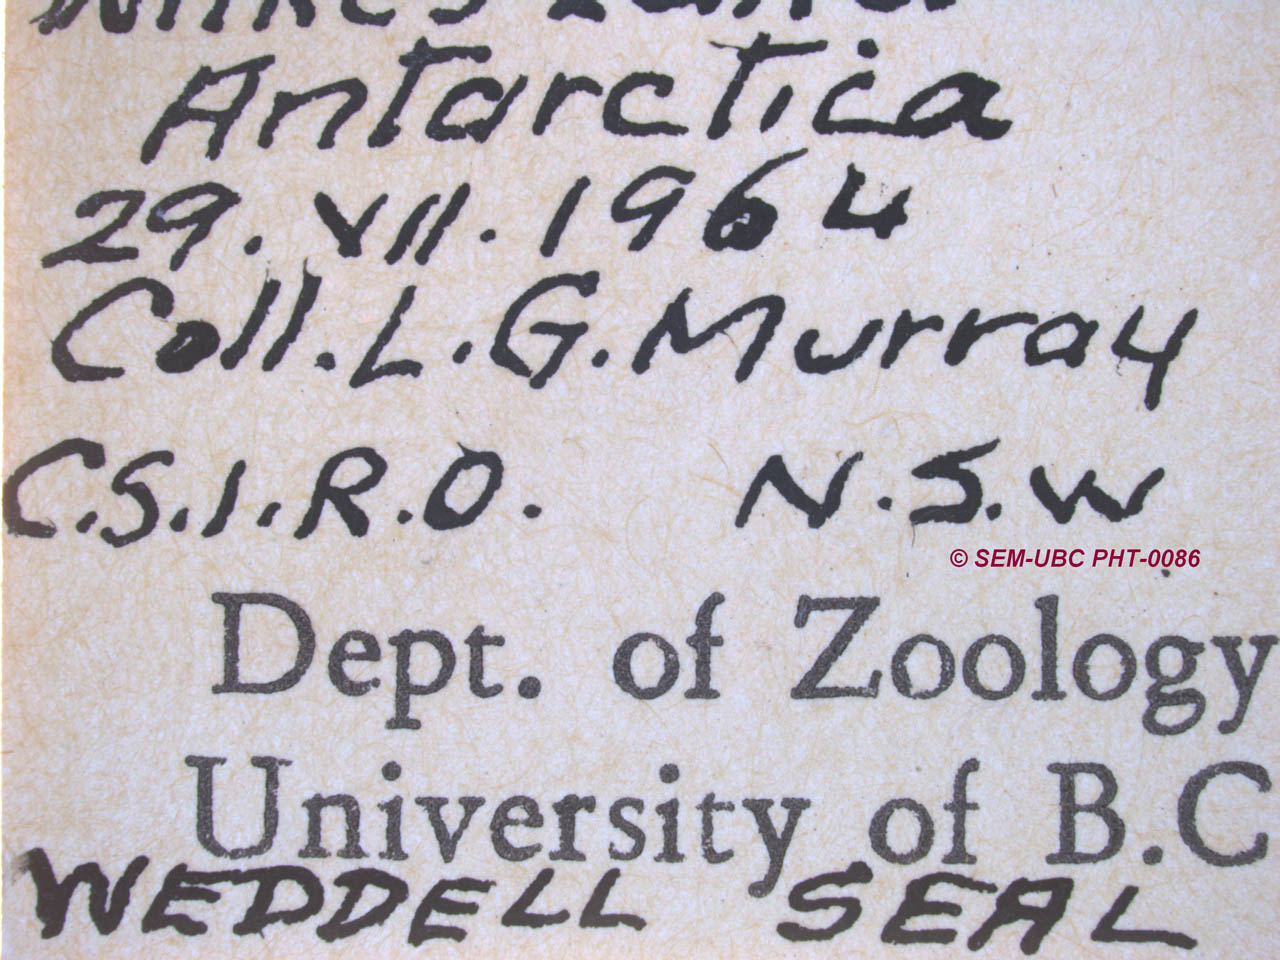 Wilkes Land
Antarctica
29. VII. 1964
Coll. L. G. Murray
C.S.I.R.O. N.S.W
© SEM-UBC PHT-0086
Dept. of Zoology
University of B.C
WEDDELL SEAL